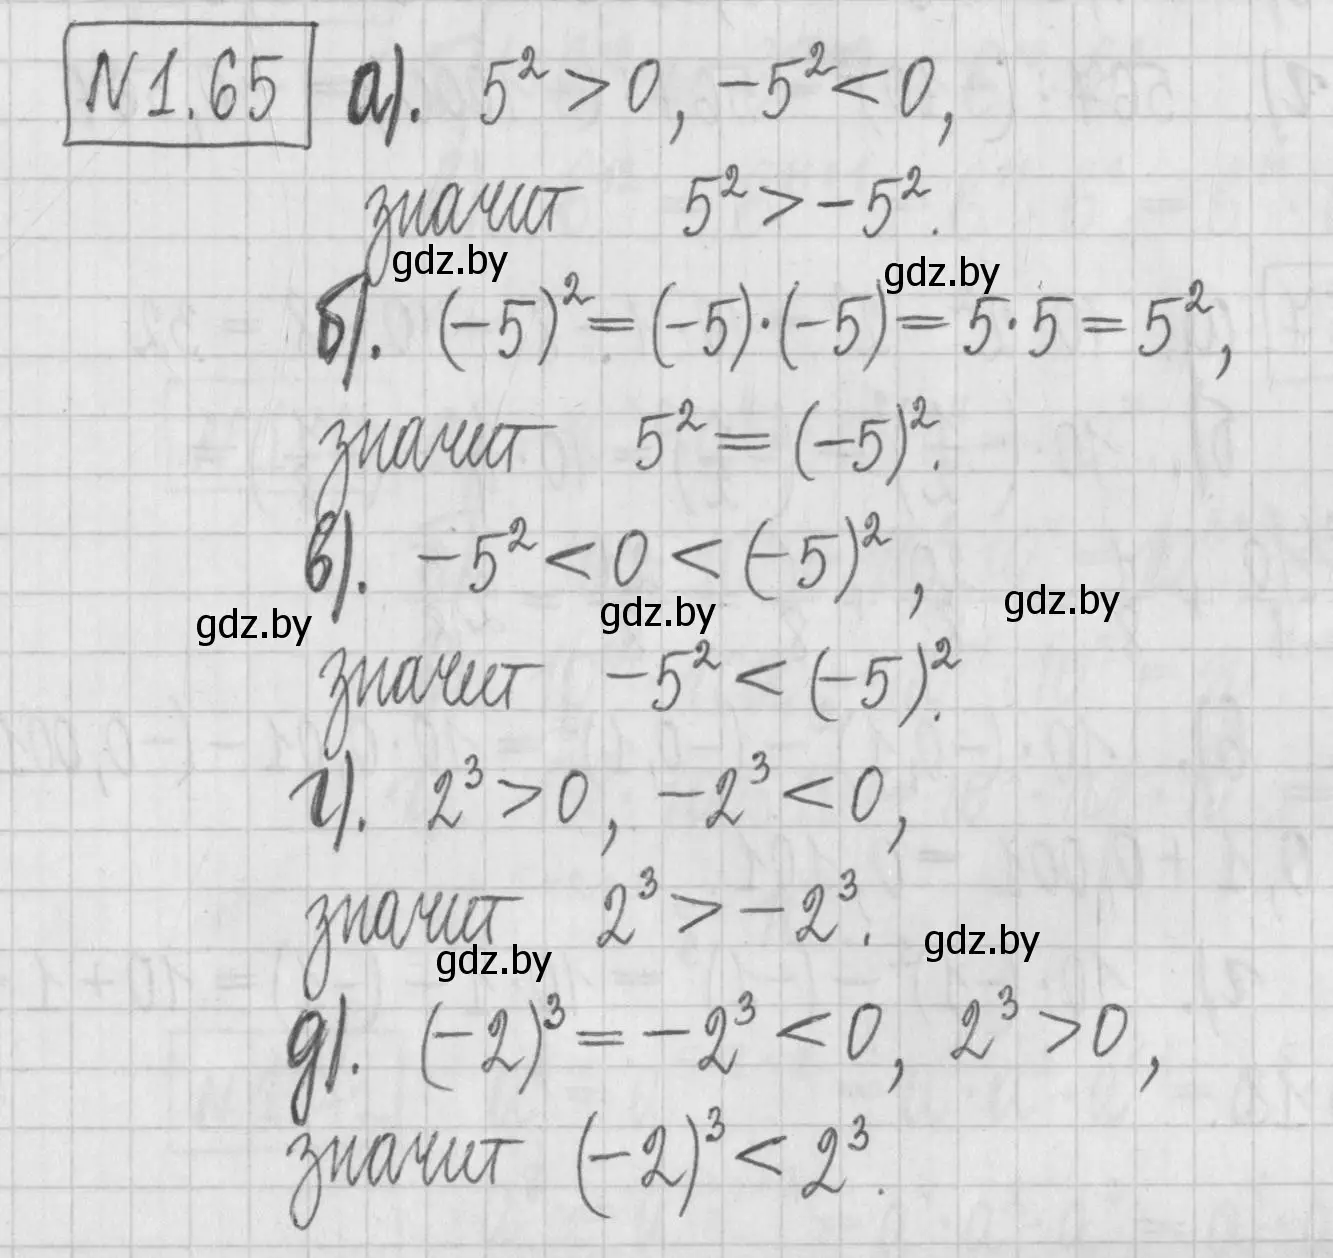 N 1.65 а). 5² > 0, -5² < 0,
значит 5² > -5².
gdz.by gdz.by
б). (-5)² = (-5)·(-5) = 5·5 = 5²,
значит 5² = (-5)².
в). -5² < 0 < (-5)²,
gdz.by gdz.by gdz.by
значит -5² < (-5)².
г). 2³ > 0, -2³ < 0,
значит 2³ > -2³.
gdz.by gdz.by
д). (-2)³ = -2³ < 0, 2³ > 0,
значит (-2)³ < 2³.